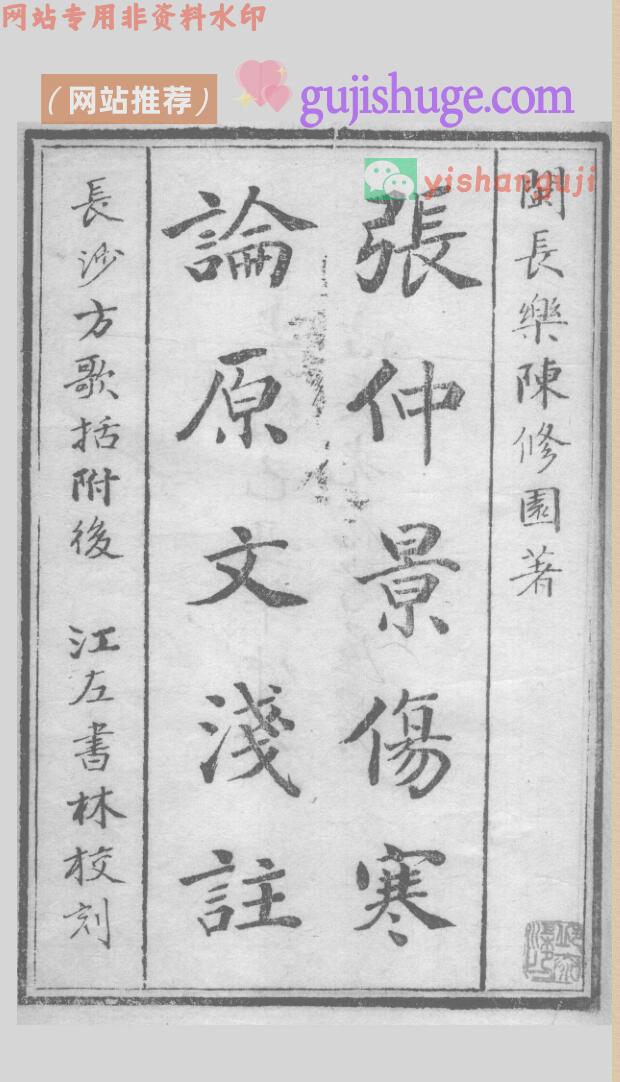 网站专用非资料水印
（网站推荐）
gujishuge.com
yishanguji
閩長樂陳修園著
張仲景傷寒
論原文淺註
長沙方歌括附後　江左書林校刻